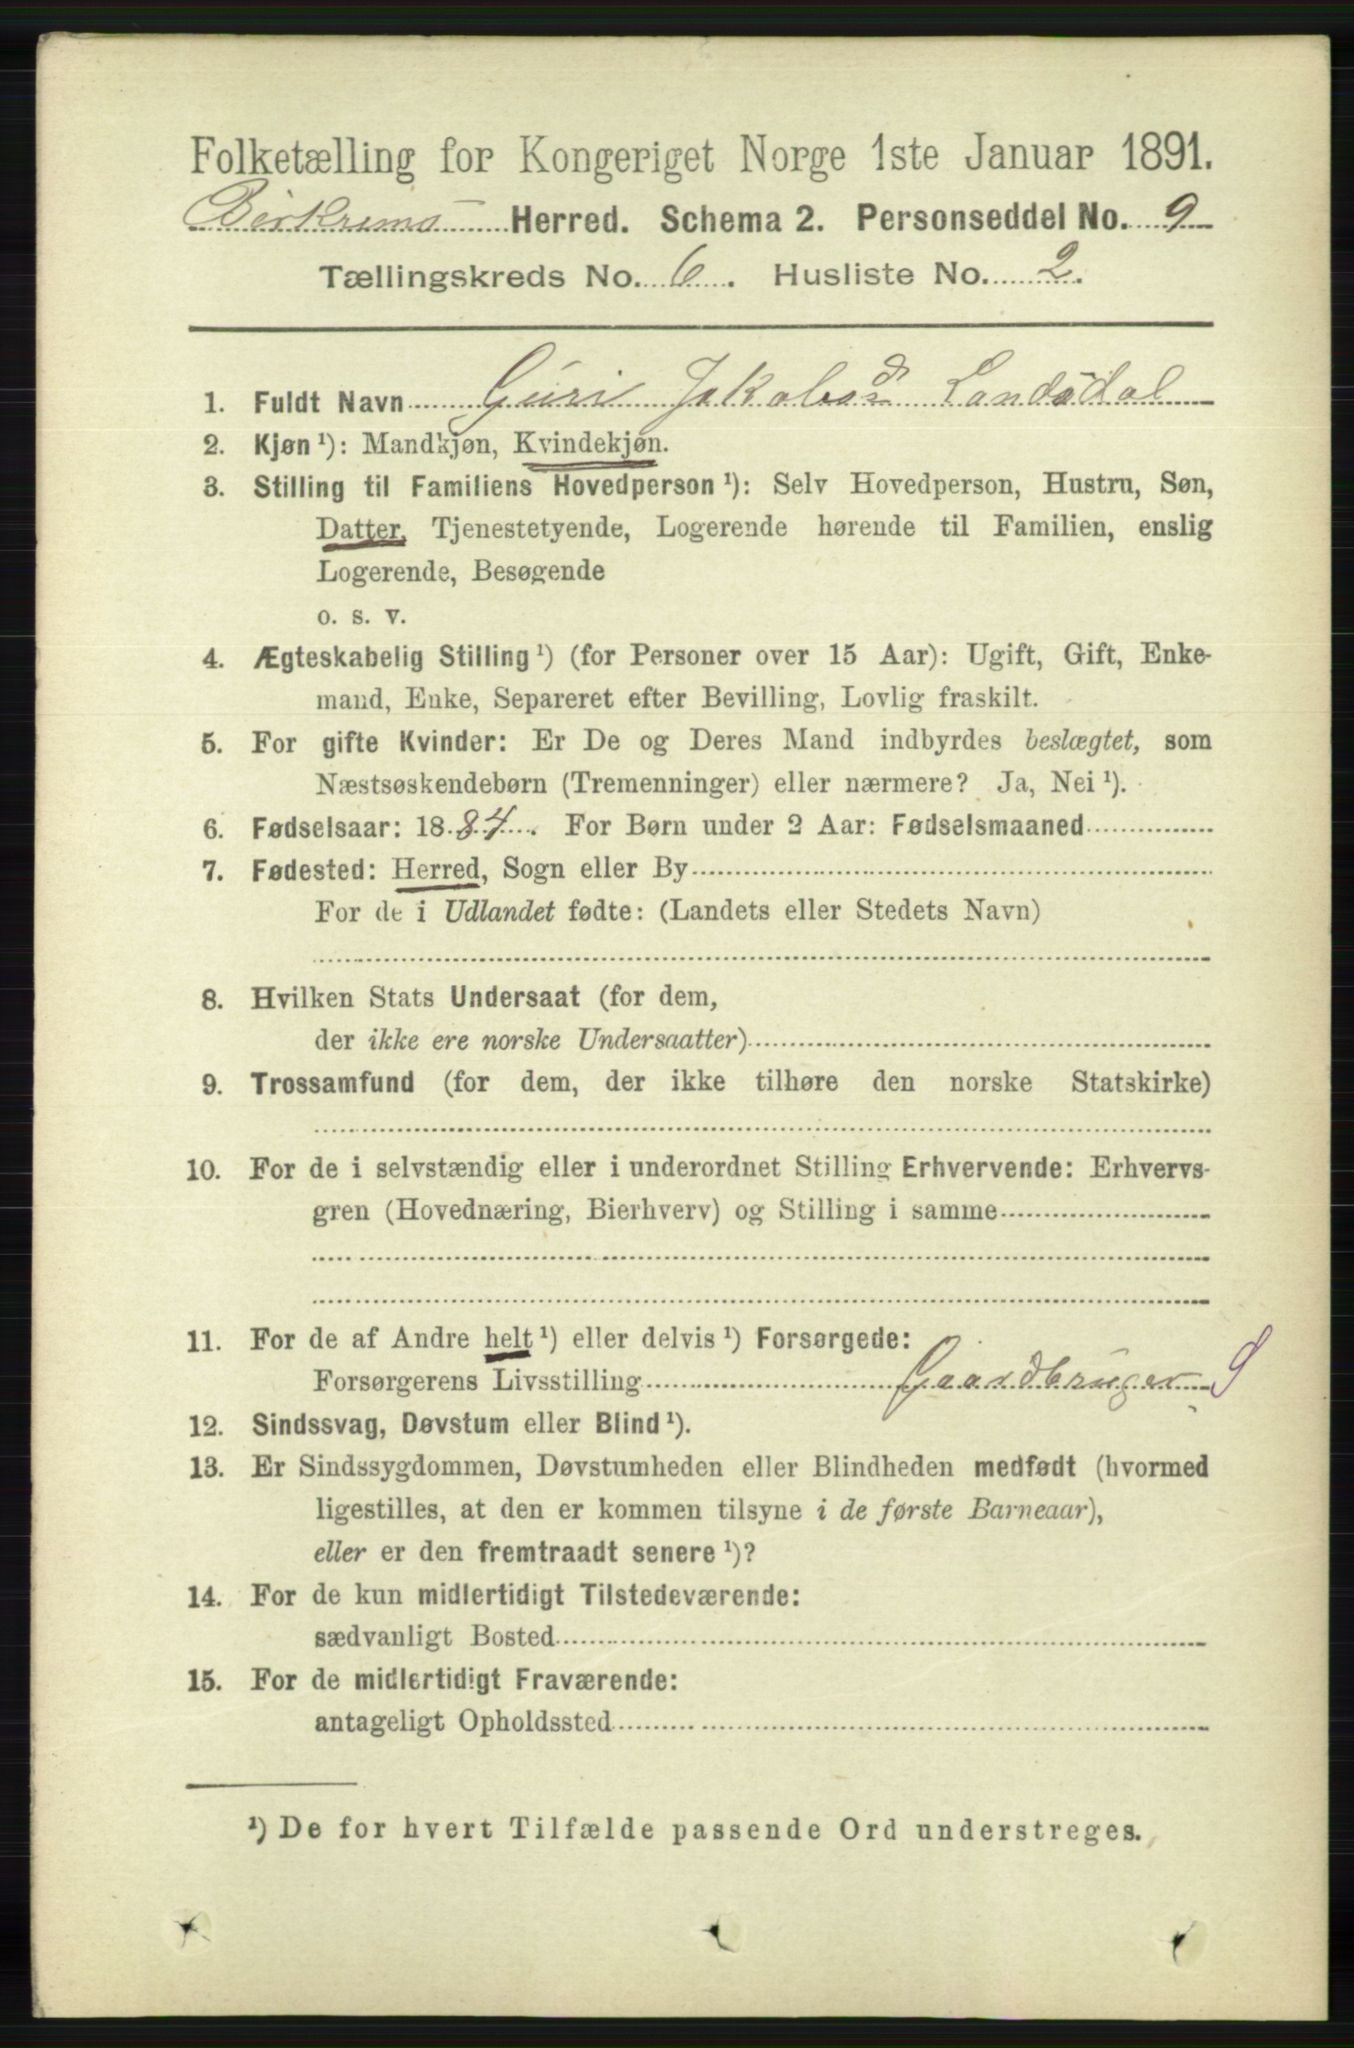 Folketælling for Kongeriget Norge 1ste Januar 1891.
Birkrems Herred. Schema 2. Personseddel No. 9
Tællingskreds No. 6. Husliste No. 2.
1. Fuldt Navn Guri Jakobsd Landsdal
2. Kjøn ¹): Mandkjøn, Kvindekjøn.
3. Stilling til Familiens Hovedperson ¹): Selv Hovedperson, Hustru, Søn,
Datter, Tjenestetyende, Logerende hørende til Familien, enslig
Logerende, Besøgende
o. s. v.
4. Ægteskabelig Stilling ¹) (for Personer over 15 Aar): Ugift, Gift, Enke-
mand, Enke, Separeret efter Bevilling, Lovlig fraskilt.
5. For gifte Kvinder: Er De og Deres Mand indbyrdes beslægtet, som
Næstsøskendebørn (Tremenninger) eller nærmere? Ja, Nei ¹).
6. Fødselsaar: 1884. For Børn under 2 Aar: Fødselsmaaned
7. Fødested: Herred, Sogn eller By
For de i Udlandet fødte: (Landets eller Stedets Navn)
8. Hvilken Stats Undersaat (for dem,
der ikke ere norske Undersaatter)
9. Trossamfund (for dem, der ikke tilhøre den norske Statskirke)
10. For de i selvstændig eller i underordnet Stilling Erhvervende: Erhvervs-
gren (Hovednæring, Bierhverv) og Stilling i samme
11. For de af Andre helt ¹) eller delvis ¹) Forsørgede:
Forsørgerens Livsstilling Gaardbruger S
12. Sindssvag, Døvstum eller Blind ¹).
13. Er Sindssygdommen, Døvstumheden eller Blindheden medfødt (hvormed
ligestilles, at den er kommen tilsyne i de første Barneaar),
eller er den fremtraadt senere ¹)?
14. For de kun midlertidigt Tilstedeværende:
sædvanligt Bosted
15. For de midlertidigt Fraværende:
antageligt Opholdssted
¹) De for hvert Tilfælde passende Ord understreges.